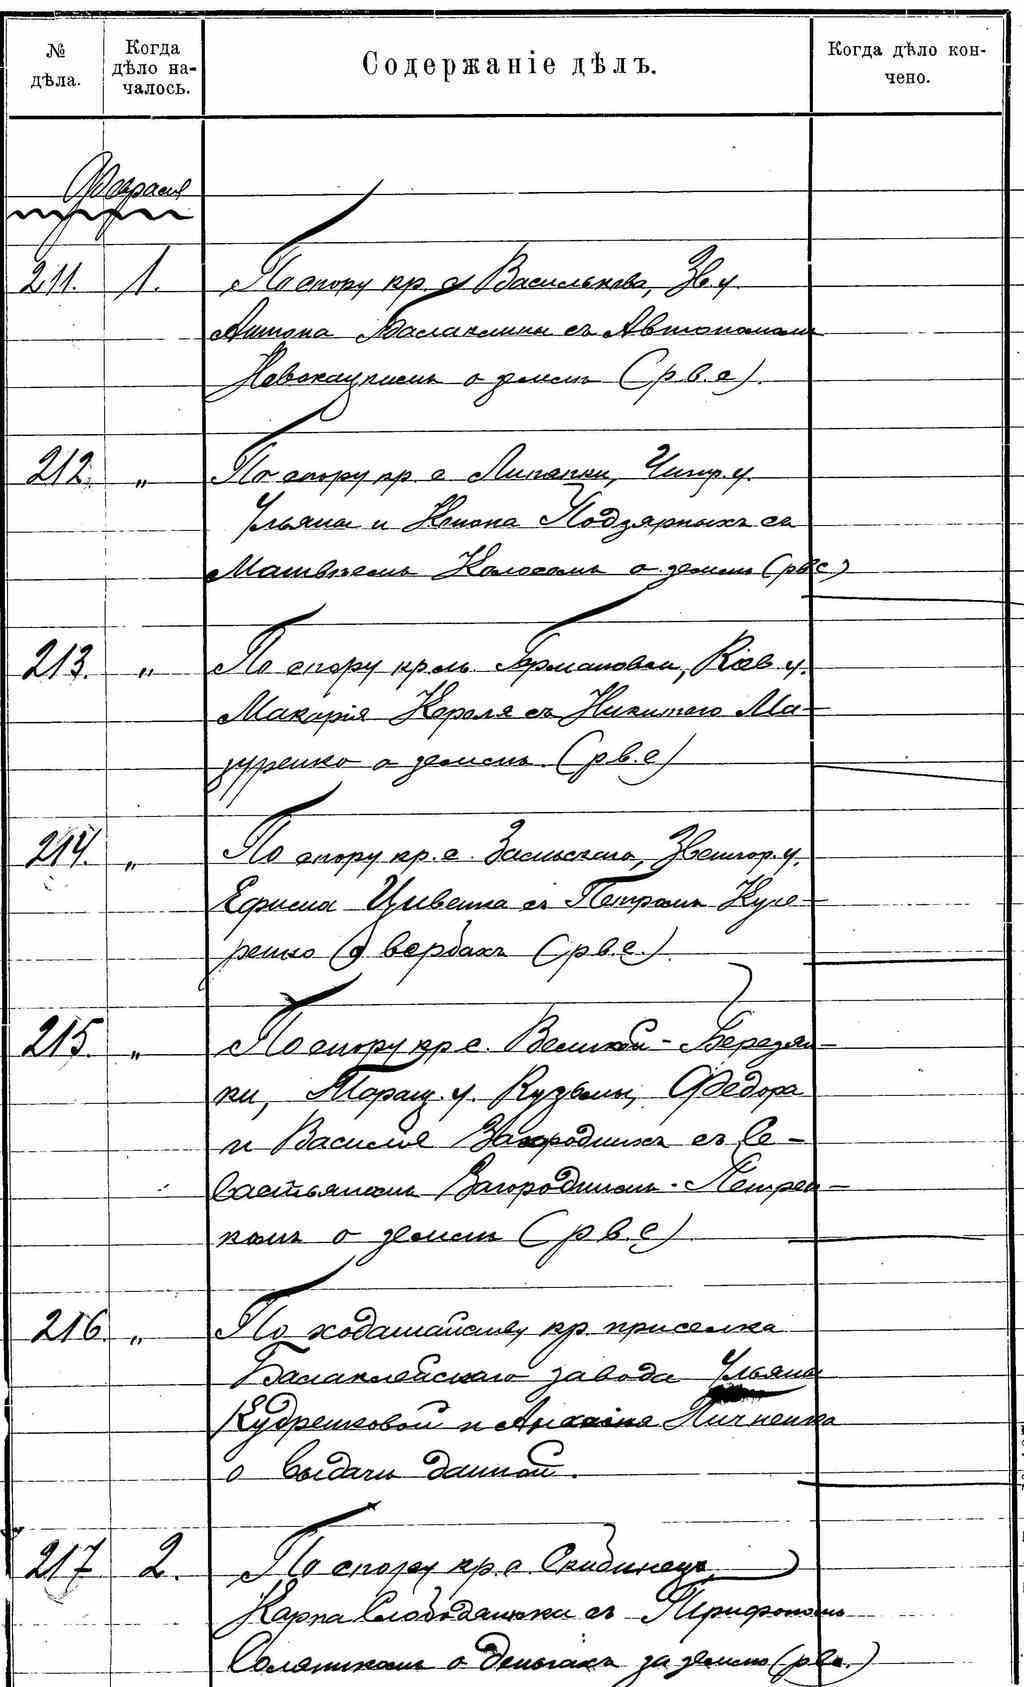 № дѣла.
Когда дѣло началось.
Содержаніе дѣлъ.
Когда дѣло кончено.
Февраля
211. 1. По спору кр. с Василькова, Зв. у.
Антона Балаклины съ Автономомъ
о землѣ (р.в.с.)
212. „ По спору кр. с Липянки, Чигир. у.
Ульяна и Подзярныхъ съ
Матвѣемъ Колосомъ о землѣ (рвс)
213. „ По спору кр. Германовки, Кіев. у.
Макарія Короля съ Никитою Ма-
зуренко о землѣ (р.в.с)
214. „ По спору кр. с. Звенигор. у.
Ефима Цивенка съ Петромъ Куче-
ренко о вербахъ (р.в.с.)
215. „ По спору кр с. Великой-Березян-
ки, Таращ. у. Кузьмы, Федора
и Василія Загороднихъ съ Се-
вастьяномъ Загороднимъ-Петрен-
комъ о землѣ (р в. с)
216. „ По ходатайству кр. приселка
Балаклейскаго завода Ульяны
Кудренковой и Пичненка
о выдачѣ данной.
217 2. По спору кр. с. Скибинецъ
Карпа Слободянюка съ Трифономъ
о деньгахъ за землю (рвс.)